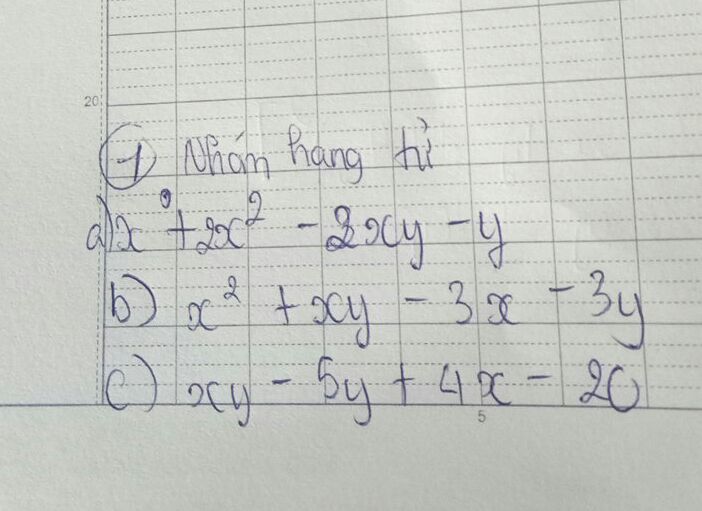 20
① Nhóm hạng tử
a) x + 2x² - 2xy - y
b) x² + xy - 3x - 3y
c) xy - 5y + 4x - 20
5